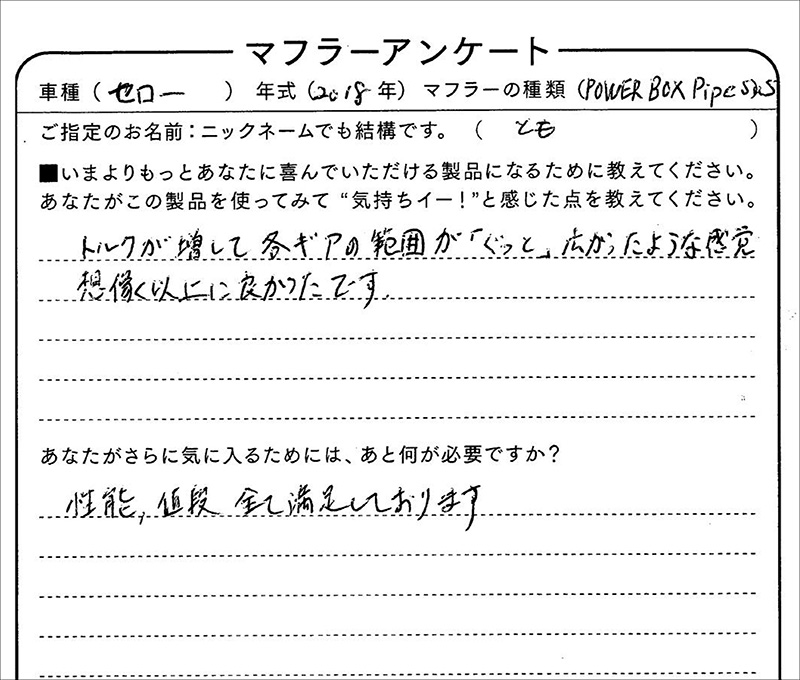 マフラーアンケート
車種（ セロー ） 年式（2018年） マフラーの種類（POWER BOX Pipe
ご指定のお名前：ニックネームでも結構です。（ とも ）
■いまよりもっとあなたに喜んでいただける製品になるために教えてください。
あなたがこの製品を使ってみて“気持ちイー！”と感じた点を教えてください。
トルクが増して各ギアの範囲が「ぐっと」広がったような感覚
想像く以上に良かったです。
あなたがさらに気に入るためには、あと何が必要ですか？
性能, 値段 全て満足しております